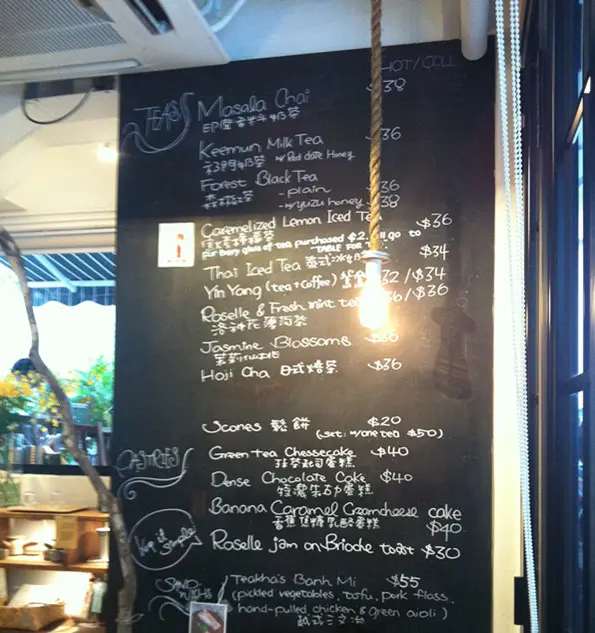 HOT / COLD
TEAS
Masala Chai $38
印度香料奶茶
Keemun Milk Tea $36
祁門奶茶 w/ Red date Honey
Forest Black Tea
森林紅茶 - plain $36
- w/ yuzu honey $38
Caramelized Lemon Iced Tea $36
檸檬茶
For every glass of tea purchased $2 will go to
"TABLE FOR
Thai Iced Tea 泰式冰奶茶 $34
Yin Yang (tea + coffee) 鴛鴦 $32 / $34
Roselle & Fresh mint tea $36 / $36
洛神花薄荷茶
Jasmine Blossoms $36
茉莉
Hoji Cha 日式焙茶 $36
Scones 鬆餅 $20
(set: w/ one tea $50)
PASTRIES
Green tea Chessecake $40
抹茶起司蛋糕
Dense Chocolate Cake $40
特濃朱古力蛋糕
Banana Caramel Creamcheese cake
香蕉焦糖乳酪蛋糕 $40
Keep it simple!
Roselle jam on Brioche toast $30
SAND-WICHS
Teakha's Banh Mi $55
(pickled vegetables, tofu, pork floss,
hand-pulled chicken & green aioli)
越式三文治